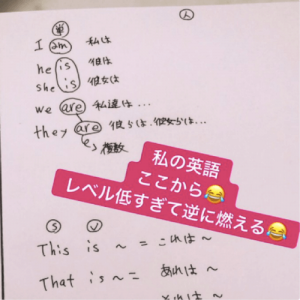 単 人
I am 私は
he is 彼は
she is 彼女は
we are 私達は...
they are 彼らは、彼女らは...
複数
私の英語
ここから😂
レベル低すぎて逆に燃える😂
S V
This is ~ = これは~
That is ~ = あれは~